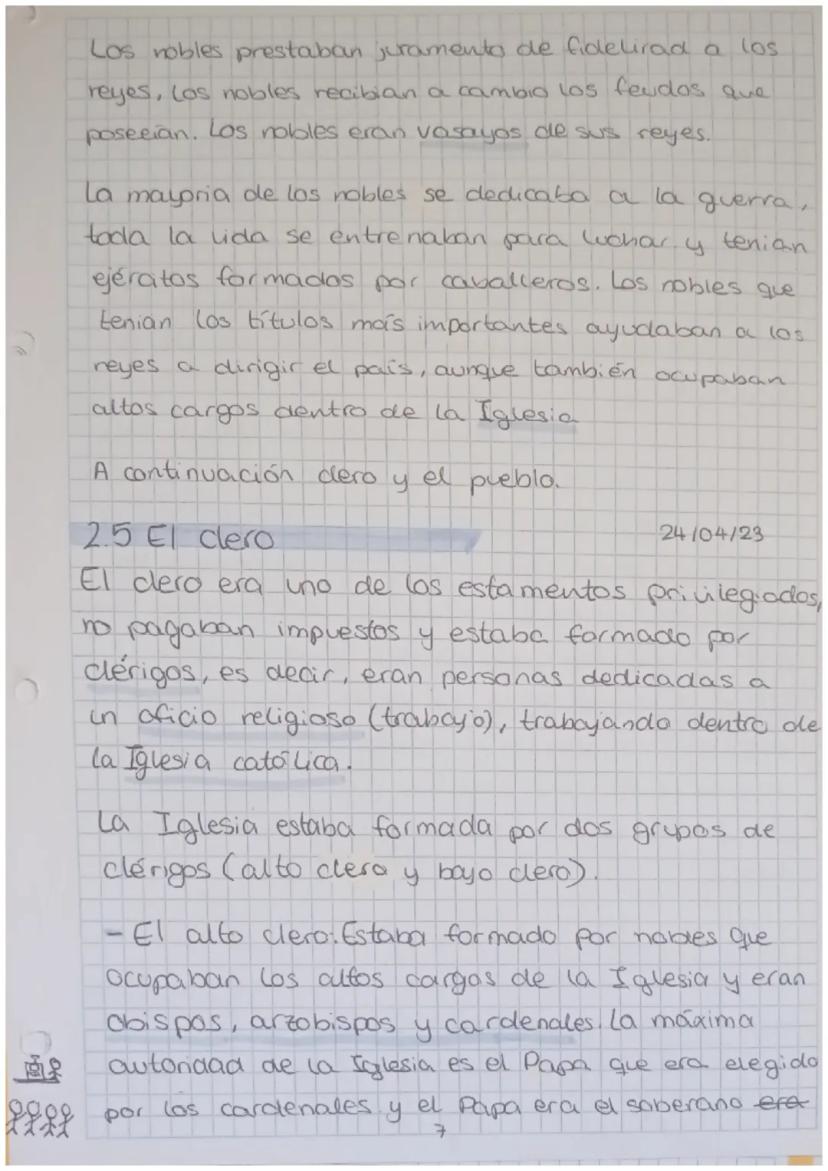 Los nobles prestaban juramento de fidelirad a los
reyes, los nobles recibian a cambio los feudos que
poseeian. Los nobles eran vasayos de sus reyes.
La mayoria de los nobles se dedicaba a la guerra,
toda la vida se entrenaban para luchar y tenian
ejércitos formados por cavalleros. Los nobles que
tenian los títulos más importantes ayudaban a los
reyes a dirigir el país, aunque también ocupaban
altos cargos dentro de la Iglesia
A continuación clero y el pueblo.
2.5 El clero 24/04/23
El clero era uno de los estamentos privilegiados,
no pagaban impuestos y estaba formado por
clérigos, es decir, eran personas dedicadas a
un oficio religioso (trabajo), trabajando dentro de
la Iglesia católica.
La Iglesia estaba formada por dos grupos de
clérigos (alto clero y bajo clero).
- El alto clero: Estaba formado por nobles que
ocupaban los altos cargos de la Iglesia y eran
obispos, arzobispos y cardenales. La máxima
autoridad de la Iglesia es el Papa que era elegido
por los cardenales y el Papa era el soberano era
7